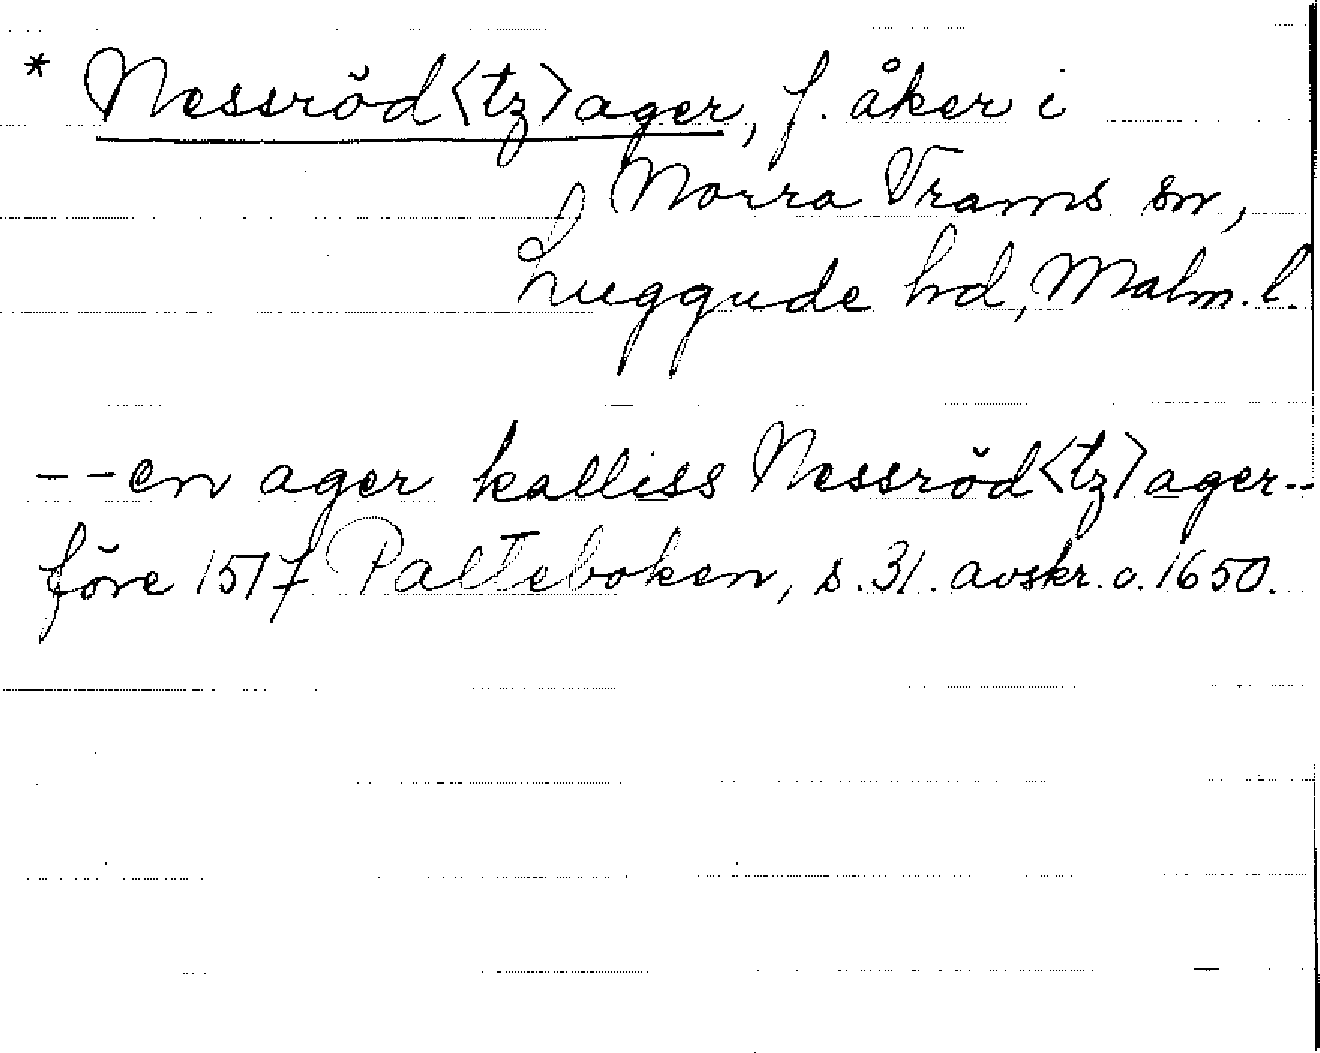 * Nessröd<tz>ager, f. åker i
Norra Vrams sn,
Luggude hd, Malm. l.
--en ager kalliss Nessröd<tz>ager--
före 1517 Palteboken, s. 31. avskr. o. 1650.